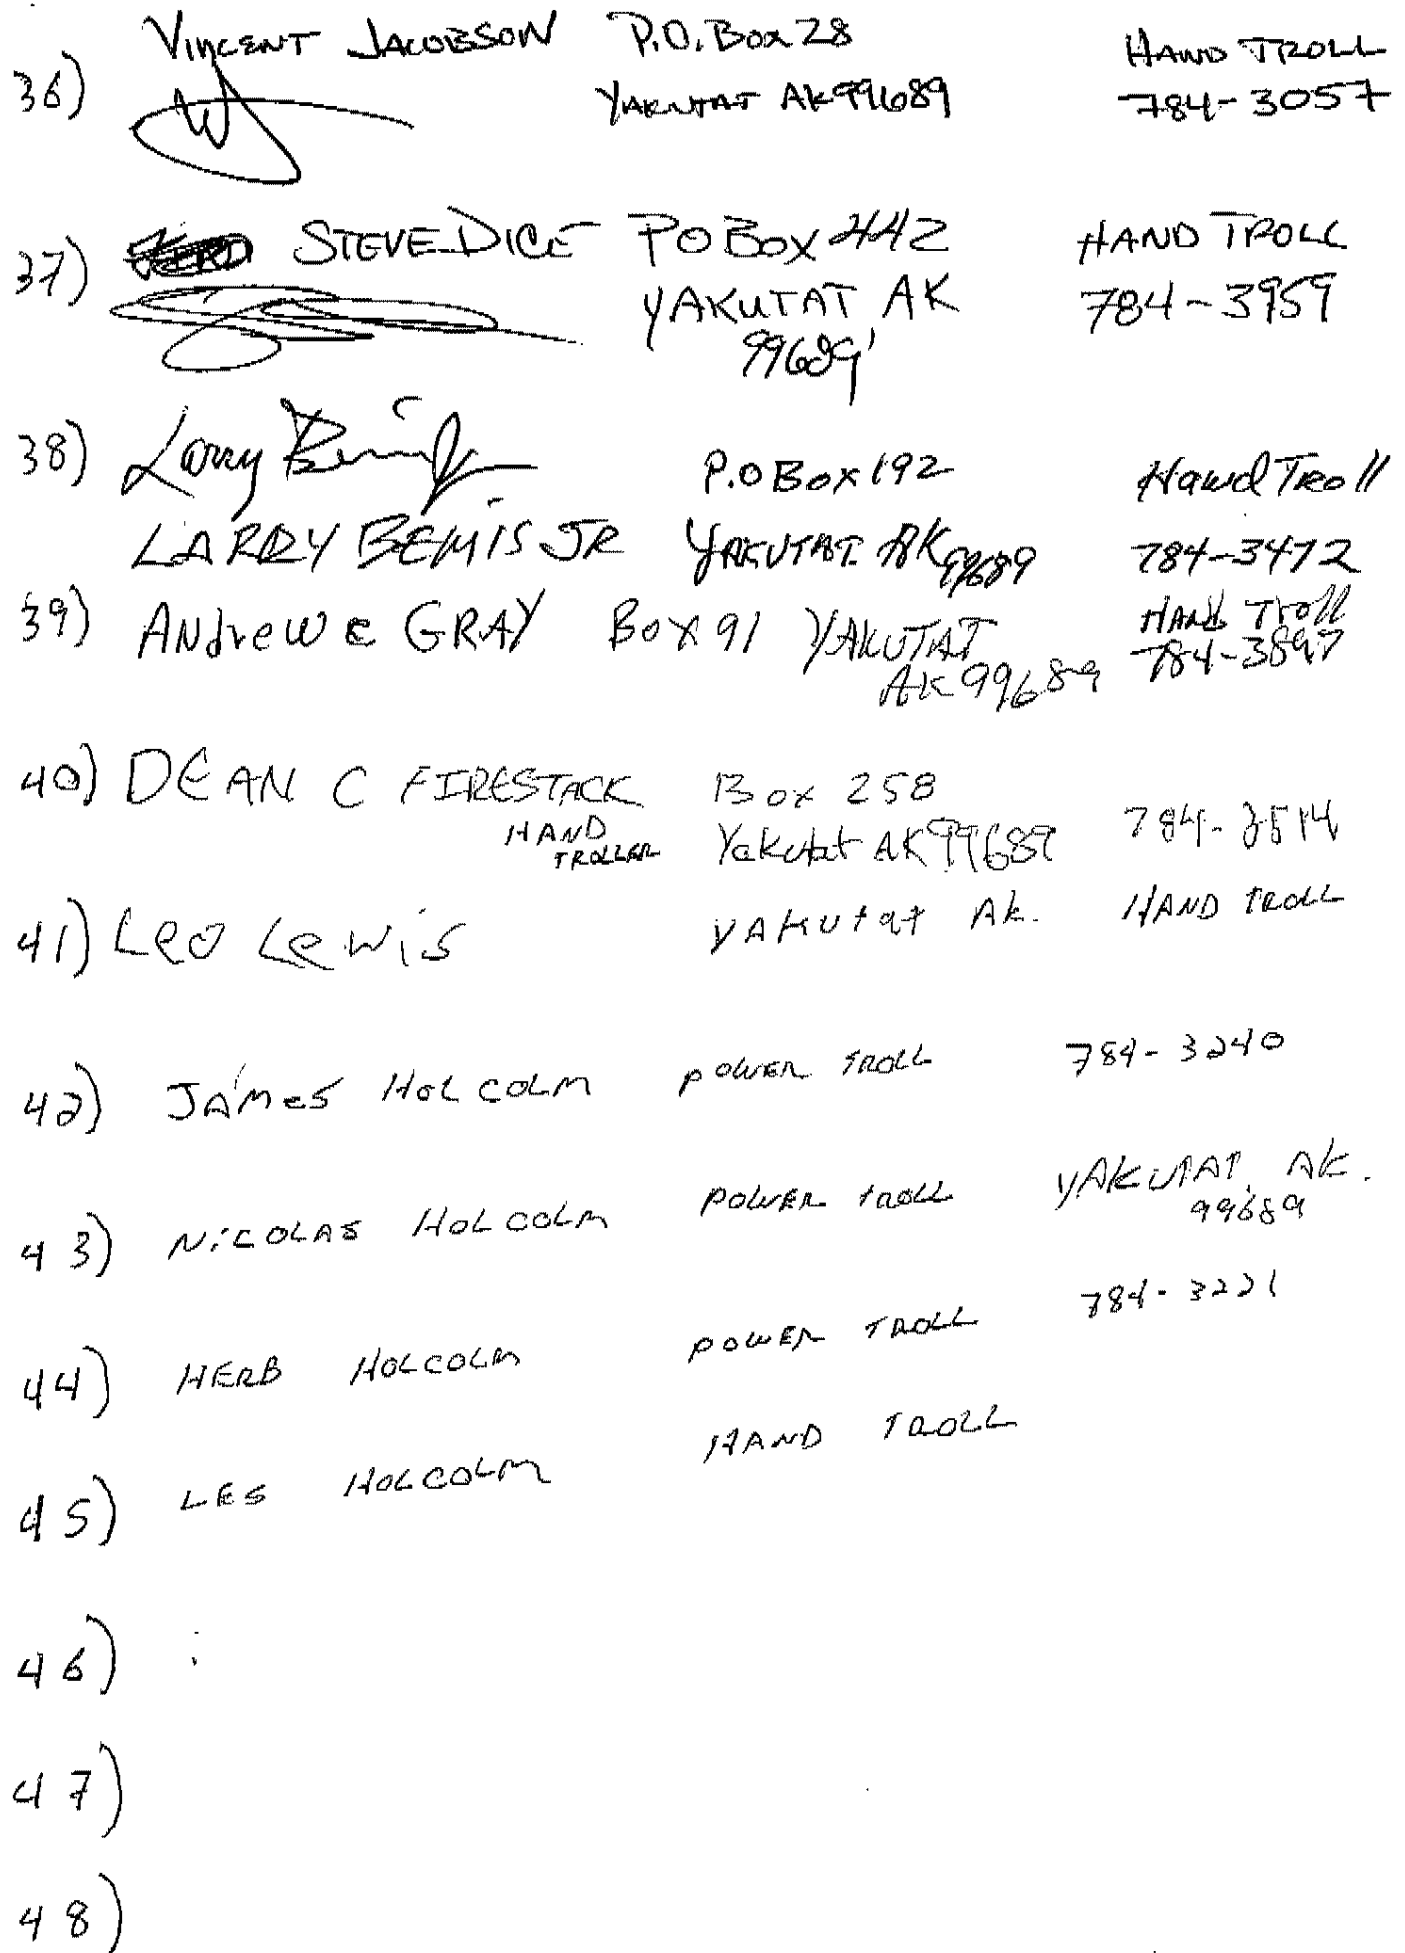 VINCENT JACOBSON P.O. Box 28 HAND TROLL
36) YAKUTAT AK 99689 784-3057
37) STEVE DICE PO Box 442 HAND TROLL
YAKUTAT AK 784-3959
99689
38) Larry Bemis P.O Box 192 Hand Troll
LARRY BEMIS JR YAKUTAT AK 99689 784-3472
39) Andrew E GRAY Box 91 YAKUTAT HAND Troll
AK 99689 784-3897
40) DEAN C FIRESTACK Box 258
HAND Yakutat AK 99689 784-3514
TROLLER
41) Leo Lewis YAKUtat Ak. HAND TROLL
42) JAMES HOLCOLM POWER TROLL 784-3240
43) NiCOLAS HOLCOLM POWER tROLL YAKUTAT, AK.
99689
44) HERB HOLCOLM POWER TROLL 784-3221
45) LES HOLCOLM HAND TROLL
46)
47)
48)